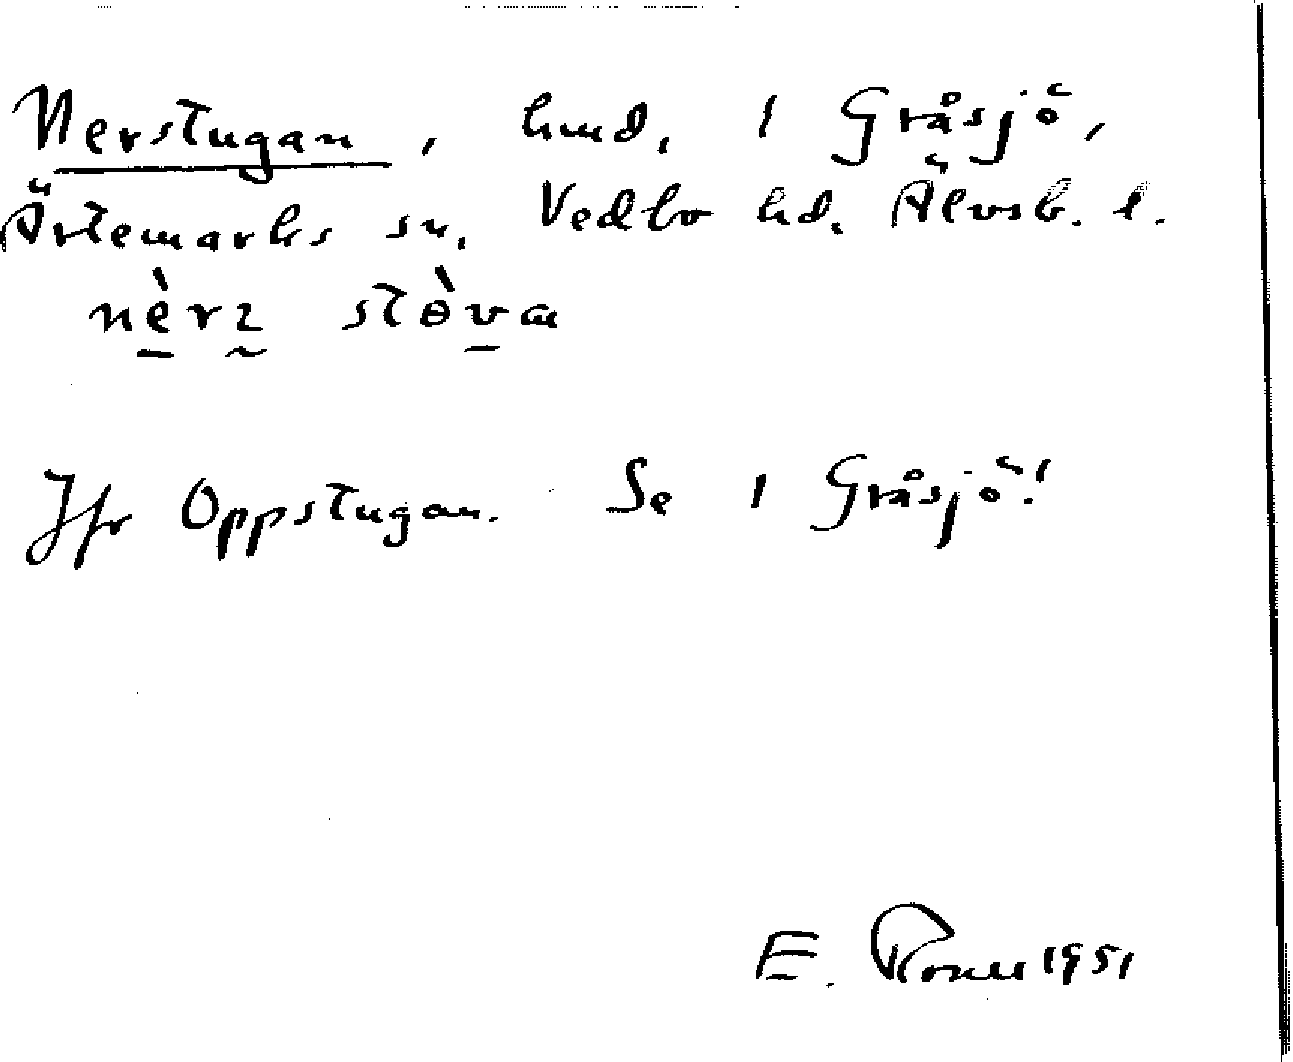 Nerstugan, hmd, 1 Gråsjö,
Ärtemarks sn, Vedbo hd. Älvsb. l.
nè̱rz̰ stòv̱a
Jfr Oppstugan. Se 1 Gråsjö!
E. 1951